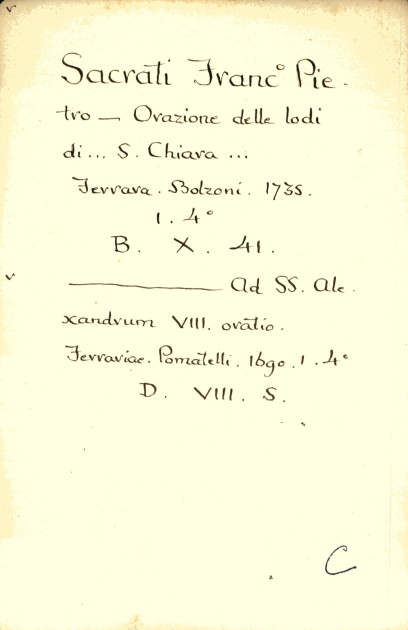 Sacrati Franc.° Pie-
tro — Orazione delle lodi
di... S. Chiara ...
Ferrara. Bolzoni. 1735.
1. 4°
B. X. 41.
——— Ad SS. Ale-
xandrum VIII. oratio.
Ferrariae. Pomatelli. 1690. 1. 4°
D. VIII. 5.
C